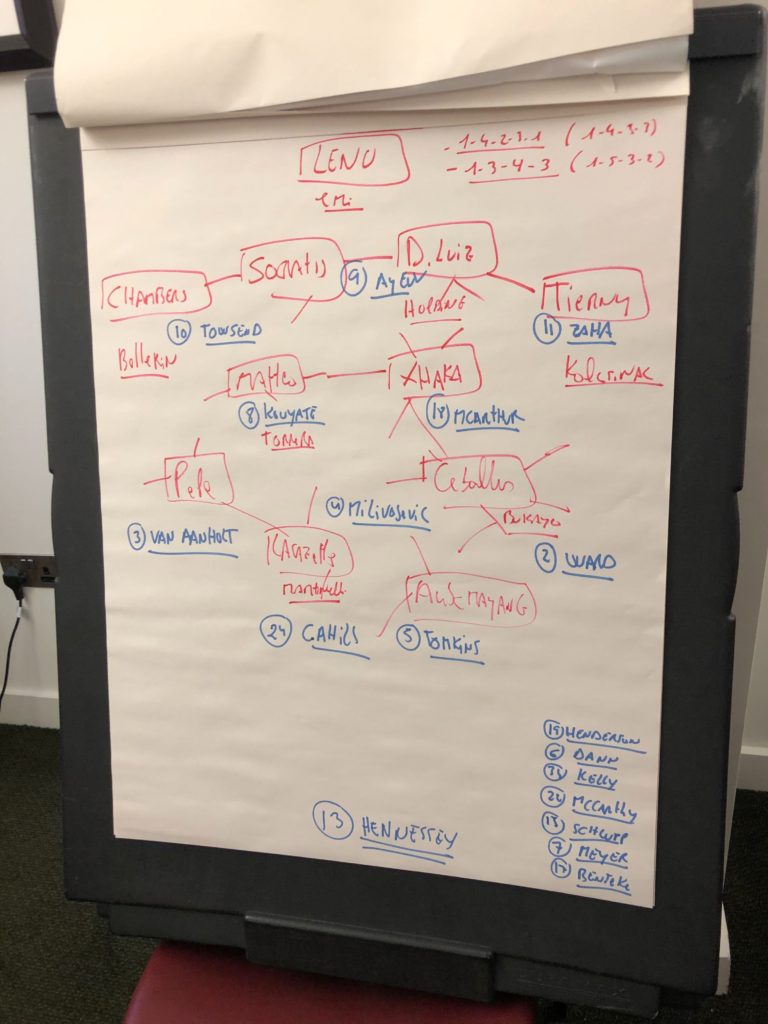 LENO
- 1-4-2-3-1 (1-4-3-3)
- 1-3-4-3 (1-5-3-2)
EMi
SOCRATIS
D. LUIZ
CHAMBERS
TIERNY
9 AYEW
HOLDING
10 TOWSEND
11 ZAHA
BELLERIN
KOLASINAC
MATTEO
XHAKA
8 KOUYATE
18 MCARTHUR
TORREIRA
PePe
Ceballos
4 MILIVOJEVIC
BUKAYO
3 VAN AANHOLT
2 WARD
LACAZETTE
MARTINELLI
AUBAMAYANG
24 CAHILL
5 TOMKINS
19 HENDERSON
6 DANN
34 KELLY
22 MCCARTHY
15 SCHLUPP
7 MEYER
17 BENTEKE
13 HENNESSEY